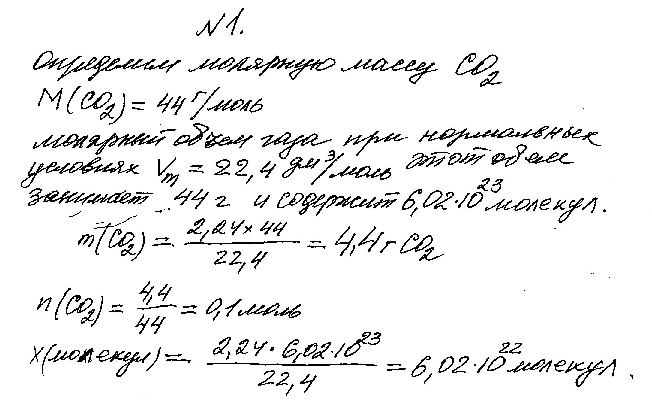 N1.
Определим молярную массу CO₂
M(CO₂) = 44 г/моль
молярный объем газа при нормальных
условиях Vm = 22,4 дм³/моль этот обем
занимает 44 г и содержит 6,02·10²³ молекул.
m(CO₂) = 2,24×44 / 22,4 = 4,4 г CO₂
n(CO₂) = 4,4 / 44 = 0,1 моль
X(молекул) = 2,24·6,02·10²³ / 22,4 = 6,02·10²² молекул.